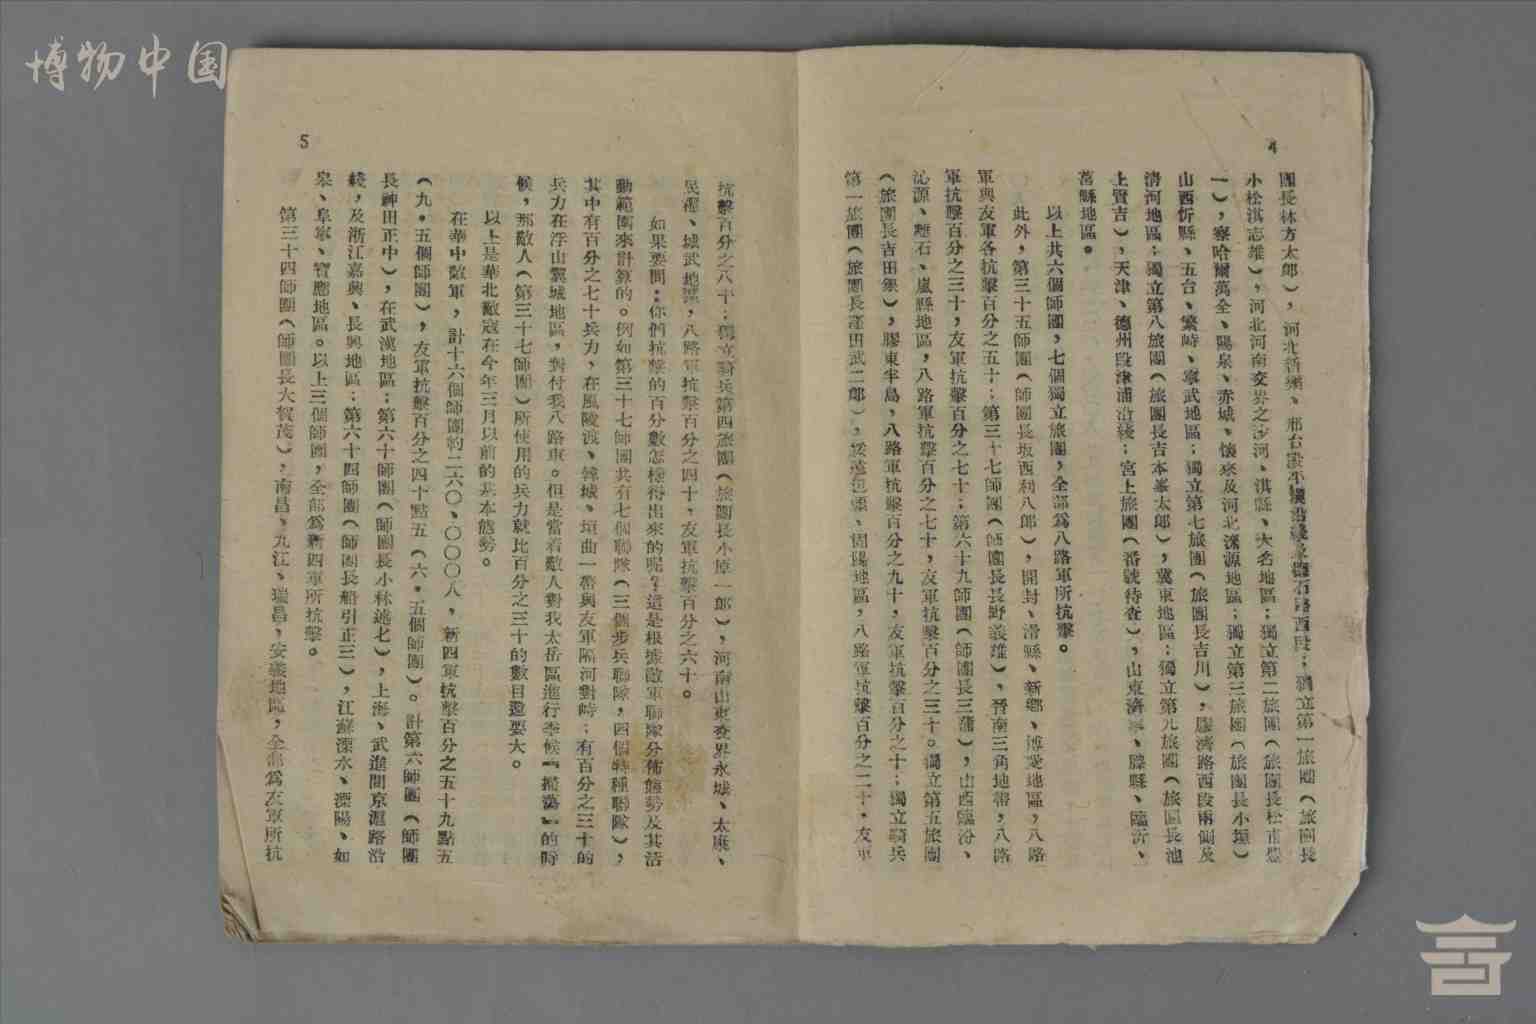 博物中国
4
團長林方太郎），河北
小松淇志雄），河北河南交界之沙河、淇縣、大名地區；獨立第二旅團（旅團長松甫
一），察哈爾萬全、陽泉、赤城、懷來及河北淶源地區；獨立第三旅團（旅團長小
山西忻縣、五台、繁峙、寧武地區；獨立第七旅團（旅團長吉川），膠濟路西段兩側及
清河地區；獨立第八旅團（旅團長吉本峯太郎），冀東地區；獨立第九旅團（旅團長池
上賢吉），天津、德州段津浦沿綫；宮上旅團（番號待查），山東濟寧、滕縣、臨沂、
莒縣地區。
以上共六個師團，七個獨立旅團，全部爲八路軍所抗擊。
此外，第三十五師團（師團長坂西利八郎），開封、滑縣、新鄉、博愛地區，八路
軍與友軍各抗擊百分之五十；第三十七師團（師團長長野義雄），晉南三角地帶，八路
軍抗擊百分之三十，友軍抗擊百分之七十；第六十九師團（師團長三蒲），山西臨汾、
沁源、離石、嵐縣地區，八路軍抗擊百分之七十，友軍抗擊百分之三十。獨立第五旅團
（旅團長吉田），膠東半島，八路軍抗擊百分之九十，友軍抗擊百分之十；獨立騎兵
第一旅團（旅團長窪田武二郎），綏遠包頭、固陽地區，八路軍抗擊百分之二十，友軍
5
抗擊百分之八十；獨立騎兵第四旅團（旅團長小原一郎），河南山東交界永城、太康、
民權、城武地區，八路軍抗擊百分之四十，友軍抗擊百分之六十。
如果要問：你們抗擊的百分數怎樣得出來的呢？這是根據敵軍聯隊分佈態勢及其活
動範圍來計算的。例如第三十七師團共有七個聯隊（三個步兵聯隊，四個特種聯隊），
其中有百分之七十兵力，在風陵渡、韓城、垣曲一帶與友軍隔河對峙；有百分之三十的
兵力在浮山翼城地區，對付我八路軍。但是當着敵人對我太岳區進行季候『掃蕩』的時
候，那敵人（第三十七師團）所使用的兵力就比百分之三十的數目還要大。
以上是華北敵寇在今年三月以前的基本態勢。
在華中敵軍，計十六個師團約二六〇、〇〇〇人，新四軍抗擊百分之五十九點五
（九・五個師團），友軍抗擊百分之四十點五（六・五個師團）。計第六師團（師團
長神田正中），在武漢地區；第六十師團（師團長小林述七），上海、武進間京滬路沿
綫，及浙江嘉興、長興地區；第六十四師團（師團長船引正三），江蘇溧水、溧陽、如
皋、阜寧、寶應地區。以上三個師團，全部爲新四軍所抗擊。
第三十四師團（師團長大賀茂），南昌、九江、瑞昌，安義地區，全部爲友軍所抗